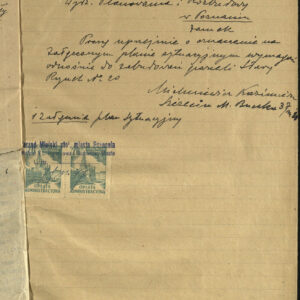 Wydz. Planowania i Rozbudowy
w Poznaniu
Zamek
Proszę uprzejmie o oznaczenie na
załączonym planie sytuacyjnym wymagań
odnośnie do zabudowań posesji Stary
Rynek No. 20
Kazimierz
Szczecin M. Buczka 37
1 załącznik plan sytuacyjny
Zarząd Miejski stoł. miasta Poznania
OPŁATA
ADMINISTRACYJNA
OPŁATA
ADMINISTRACYJNA